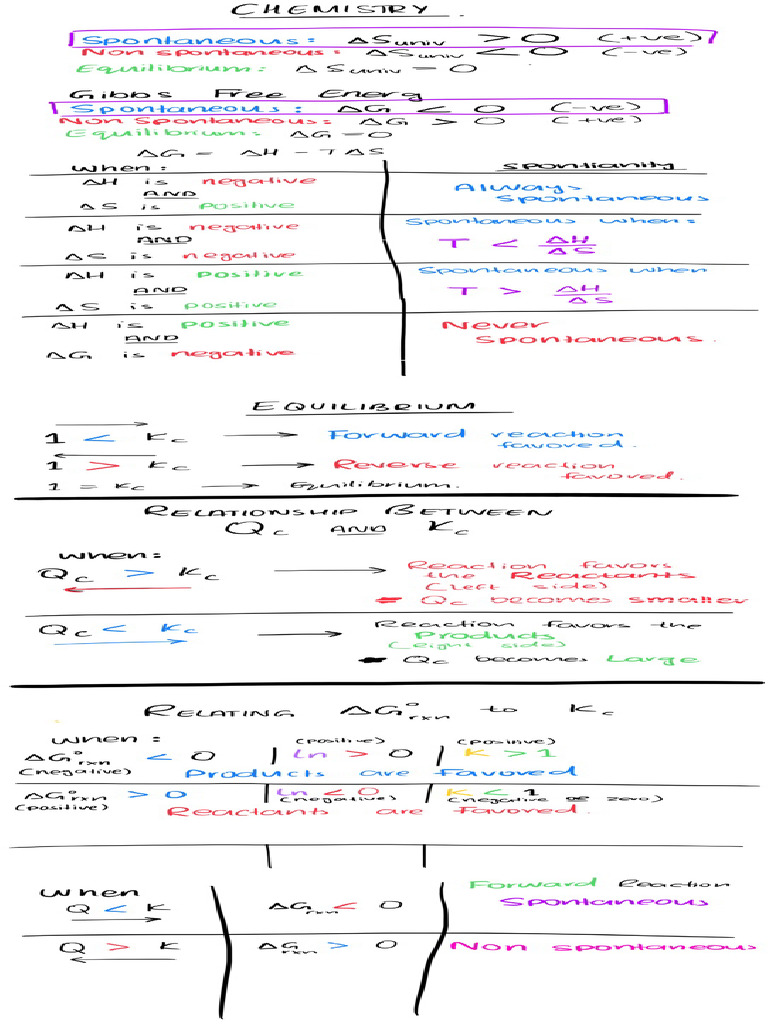 CHEMISTRY.
Spontaneous: ΔSuniv > 0 (+ve)
Non spontaneous: ΔSuniv < 0 (-ve)
Equilibrium: ΔSuniv = 0
Gibbs Free Energy
Spontaneous: ΔG < 0 (-ve)
Non Spontaneous: ΔG > 0 (+ve)
Equilibrium: ΔG = 0
ΔG = ΔH - TΔS
When: Spontianity
ΔH is negative
AND
ΔS is positive
Always
spontaneous
ΔH is negative
AND
ΔS is negative
Spontaneous when:
T < ΔH/ΔS
ΔH is positive
AND
ΔS is positive
Spontaneous when
T > ΔH/ΔS
ΔH is positive
AND
ΔG is negative
Never
spontaneous.
EQUILIBRIUM
1 < Kc → Forward reaction
favored.
1 > Kc → Reverse reaction
favored.
1 = Kc → Equilibrium.
RELATIONSHIP BETWEEN
Qc AND Kc
When:
Qc > Kc → Reaction favors
the Reactants
(left side)
- Qc becomes smaller
Qc < Kc → Reaction favors the
Products
(right side)
- Qc becomes Large
RELATING ΔG°rxn to Kc
When: (positive) (positive)
ΔG°rxn < 0 | Ln > 0 | K > 1
(negative) Products are favored
ΔG°rxn > 0 | Ln < 0 | K < 1
(positive) (negative) (negative or zero)
Reactants are favored.
When
Q < K
ΔGrxn < 0
Forward Reaction
Spontaneous
Q > K
ΔGrxn > 0
Non spontaneous